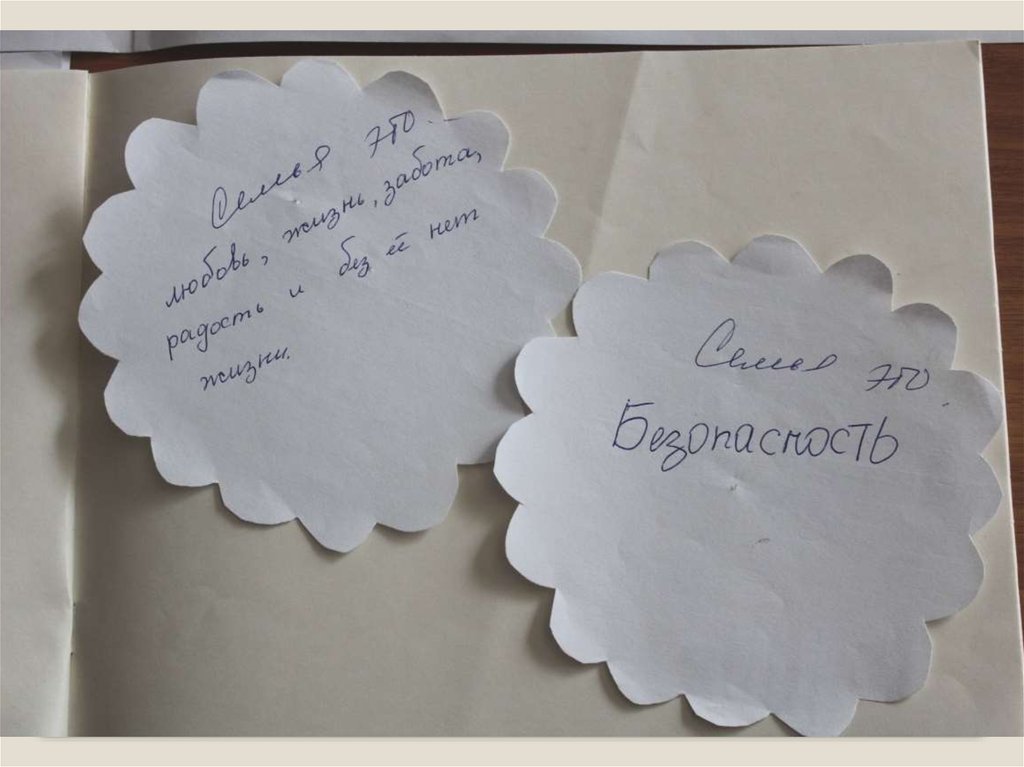 Семья это
любовь, жизнь, забота,
радость и без её нет
жизни.
Семья это
Безопасность